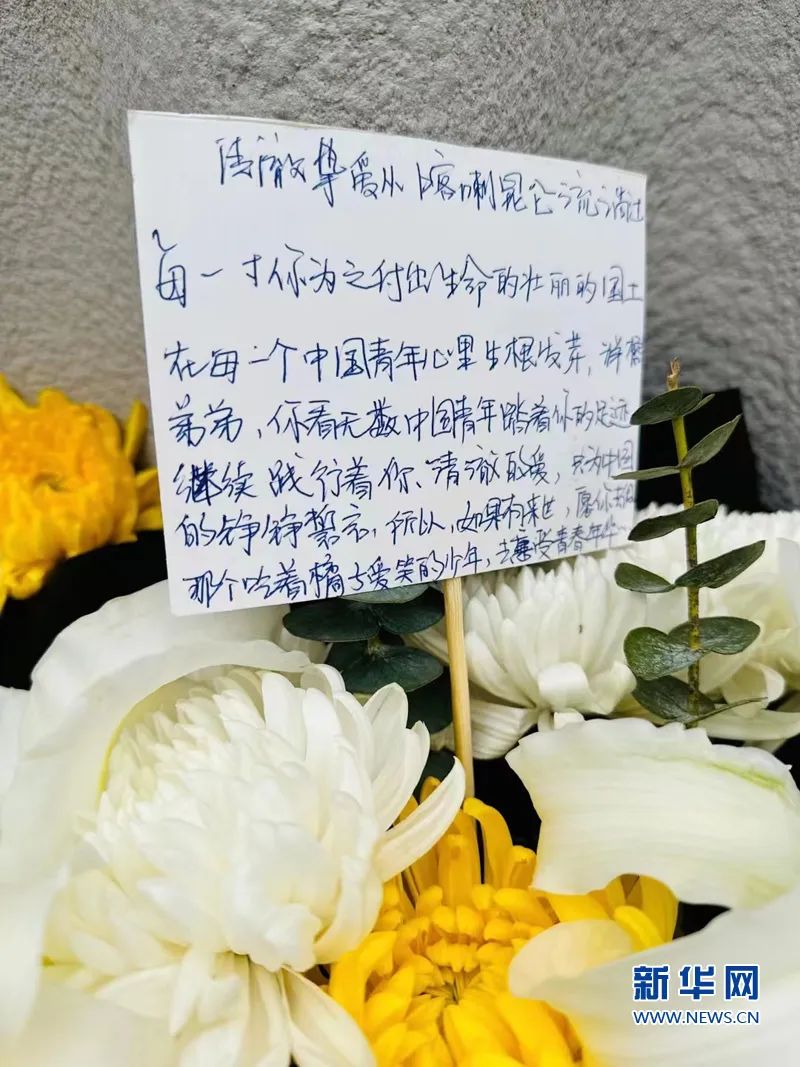 清澈挚爱从喀喇昆仑流淌过
每一寸你为之付出生命的壮丽的国土
在每一个中国青年心里生根发芽，祥榕
弟弟，你看无数中国青年踏着你的足迹
继续践行着你、清澈的爱，只为中国
的铮铮誓言，所以，如果有来世，愿你
那个吃着橘子爱笑的少年，去享受青春年华…
新华网
WWW.NEWS.CN